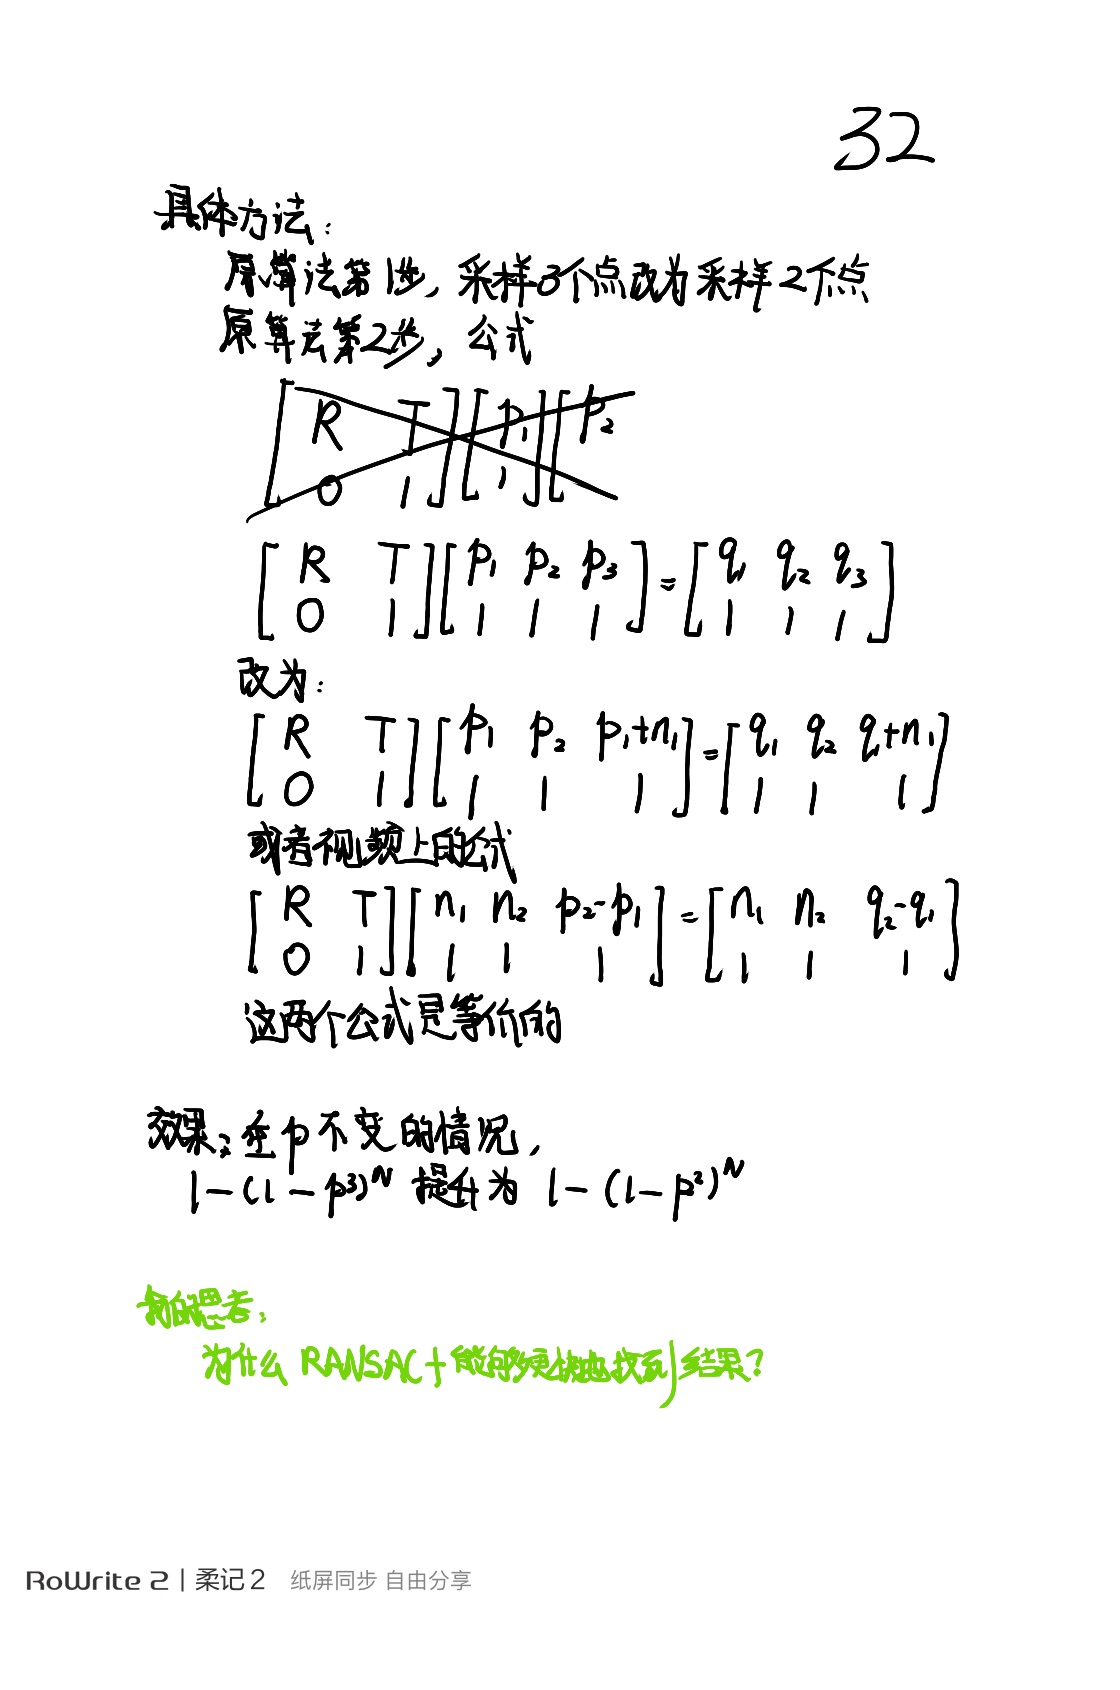 32
具体方法：
原算法第1步，采样3个点改为采样2个点
原算法第2步，公式
[R T; 0 1][p₁; 1][p₂
[R T; 0 1][p₁ p₂ p₃; 1 1 1]=[q₁ q₂ q₃; 1 1 1]
改为：
[R T; 0 1][p₁ p₂ p₁+n₁; 1 1 1]=[q₁ q₂ q₁+n₁; 1 1 1]
或者视频上的公式
[R T; 0 1][n₁ n₂ p₂-p₁; 1 1 1]=[n₁ n₂ q₂-q₁; 1 1 1]
这两个公式是等价的
效果：在p不变的情况，
1-(1-p³)ᴺ 提升为 1-(1-p²)ᴺ
我的思考：
为什么 RANSAC+能够更快地找到结果？
RoWrite 2 | 柔记2 纸屏同步 自由分享